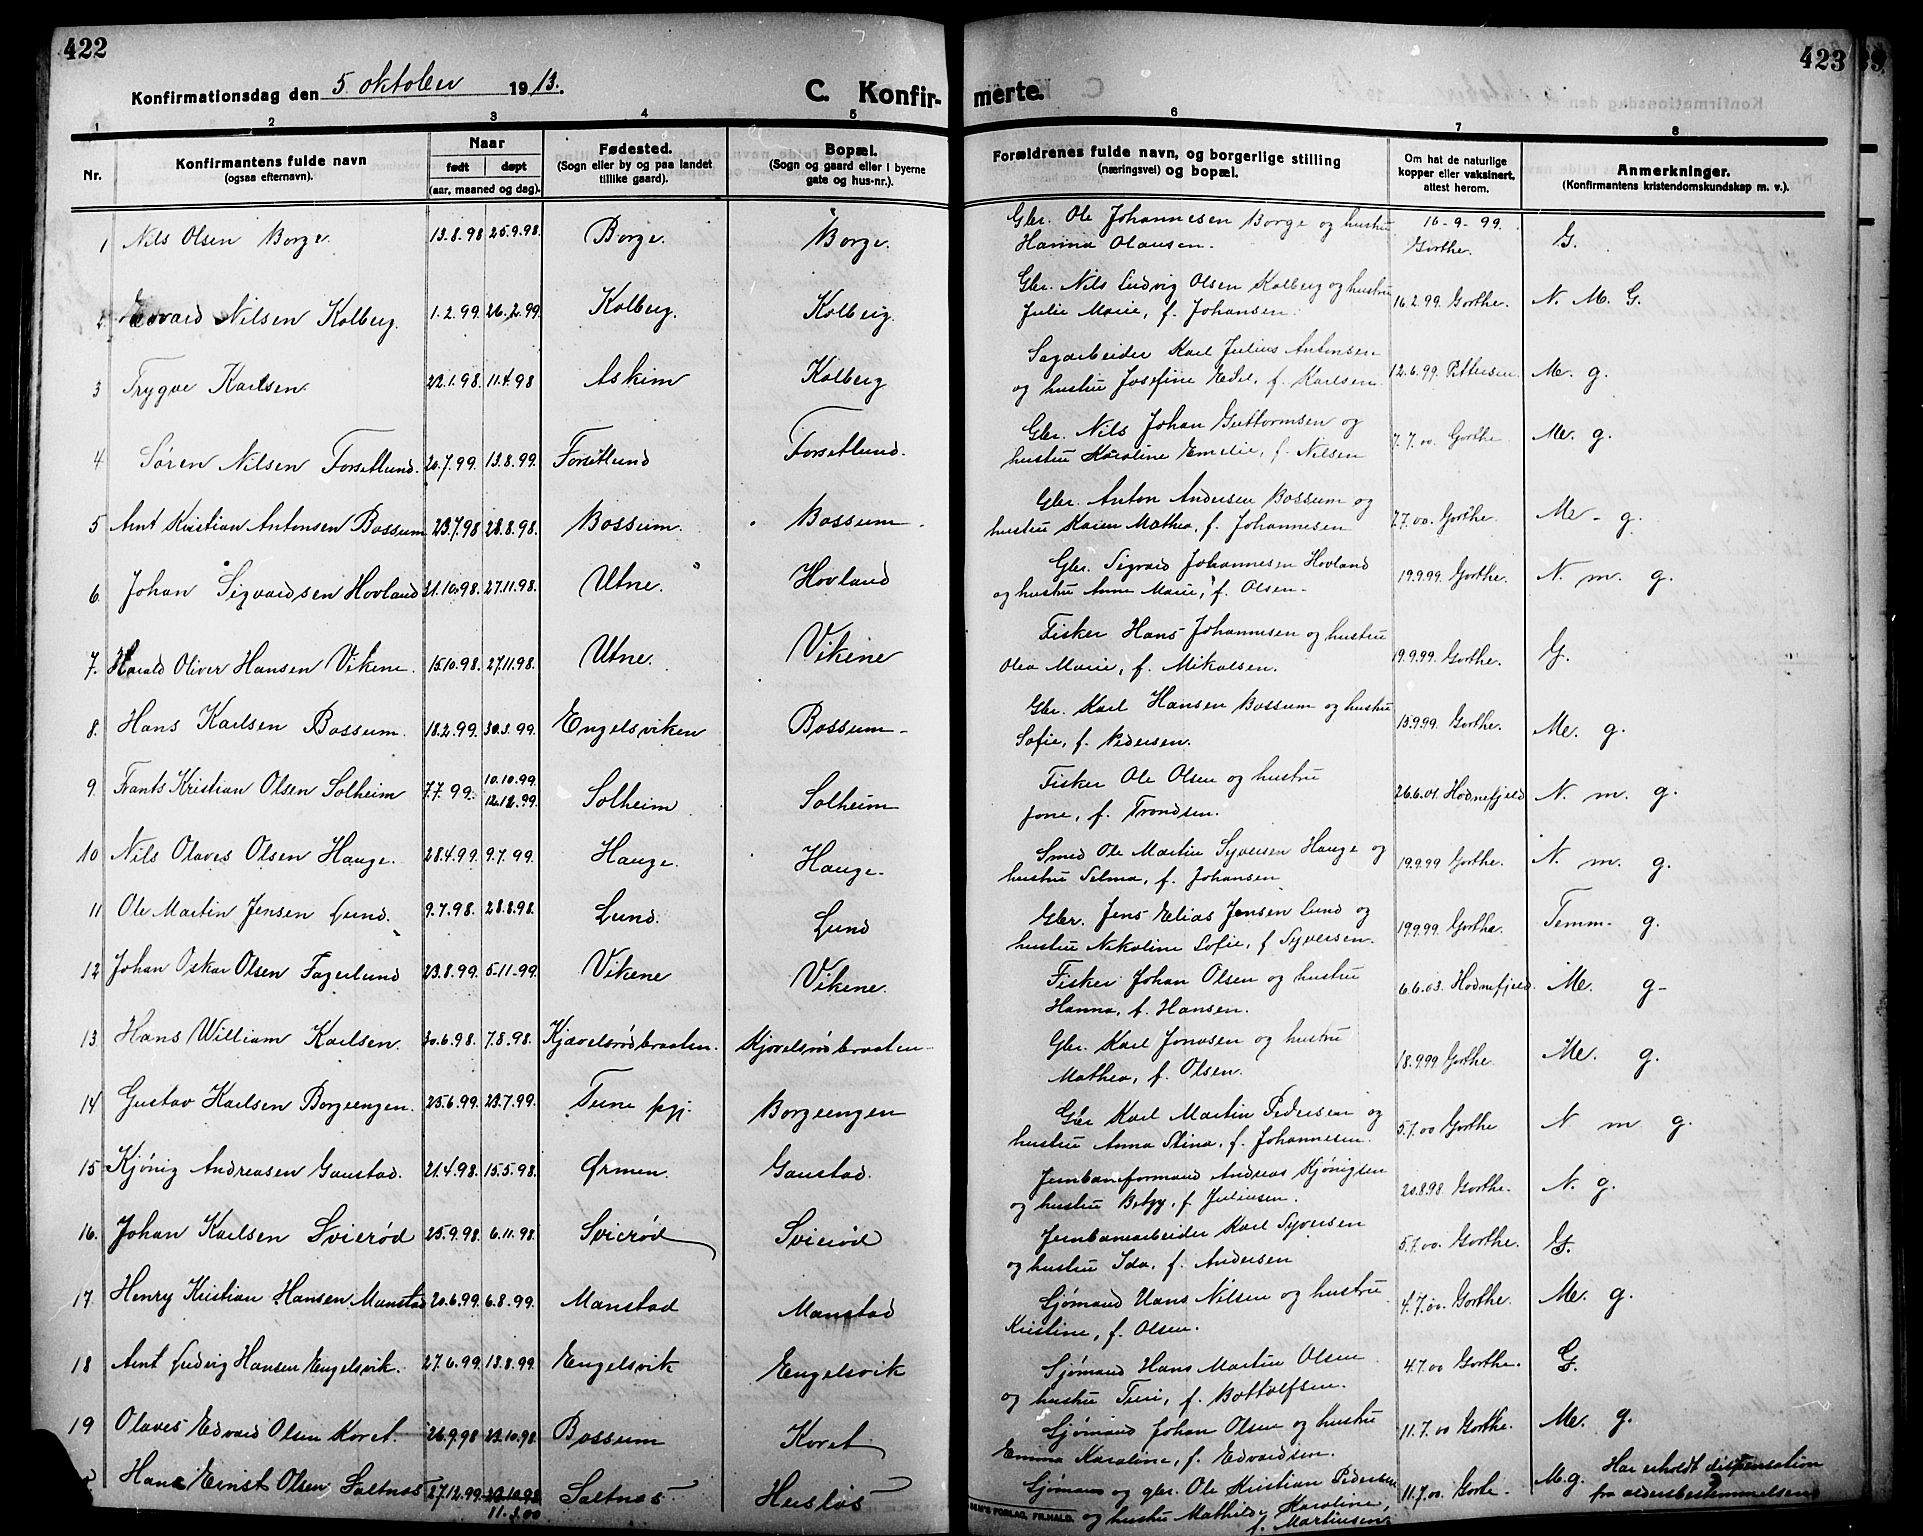 422
423
Konfirmationsdag den 5 oktober 1913.
C. Konfirmerte.
1 2 3 4 5 6 7 8
Nr.
Konfirmantens fulde navn
(ogsaa efternavn).
Naar
født døpt
(aar, maaned og dag).
Fødested.
(Sogn eller by og paa landet
tillike gaard).
Bopæl.
(Sogn og gaard eller i byerne
gate og hus-nr.).
Forældrenes fulde navn, og borgerlige stilling
(næringsvei) og bopæl.
Om hat de naturlige
kopper eller vaksinert,
attest herom.
Anmerkninger.
(Konfirmantens kristendomskundskap m. v.).
1 Nils Olsen Borge. 13.8.98 25.9.98. Borge. Borge. Gbr. Ole Johannesen Borge og hustru
Hanna Olausen. 16-9-99. Gorthe. G.
2 Edvard Nilsen Kolberg. 1.2.99. 26.2.99. Kolberg. Kolberg. Gbr. Nils Ludvig Olsen Kolberg og hustru
Julie Marie, f. Johansen. 16.2.99. Gorthe. N. M. G.
3 Trygve Karlsen 22.1.98. 11.4.98 Askim Kolberg Sagarbeider Karl Julius Antonsen
og hustru Josefine Edel, f. Karlsen. 12.6.99. Pettersen. Me. g.
4 Søren Nilsen Forsetlund. 20.7.99. 13.8.99. Forsetlund Forsetlund. Gbr. Nils Johan Guttormsen og
hustru Karoline Emelie, f. Nilsen 7.7.00. Gorthe Me. g.
5 Arnt Kristian Antonsen Bossum 23.7.98 28.8.98. Bossum. Bossum. Gbr. Anton Andersen Bossum og
hustru Karen Mathea, f. Johannesen 7.7.00. Gorthe. Me - g.
6. Johan Sigvardsen Hovland 21.10.98. 27.11.98. Utne. Hovland Gbr. Sigvard Johannesen Hovland
og hustru Anne Marie, f. Olsen. 19.9.99. Gorthe. N. m. g.
7. Harald Oliver Hansen Vikene. 15.10.98. 27.11.98. Utne. Vikene Fisker Hans Johannesen og hustru
Olea Marie, f. Mikalsen. 19.9.99. Gorthe. G.
8. Hans Karlsen Bossum. 18.2.99. 30.3.99. Engelsviken Bossum - Gbr. Karl Hansen Bossum og hustru
Sofie, f. Pedersen. 13.9.99. Gorthe. Me. g.
9. Frants Kristian Olsen Solheim 7.7.99. 10.10.99. 12.12.99. Solheim Solheim Fisker Ole Olsen og hustru
Jone, f. Trondsen. 26.6.01. Hodnefjeld N. m. g.
10 Nils Olaves Olsen Hauge. 28.4.99. 9.7.99. Hauge. Hauge. Smed Ole Martin Syversen Hauge og
hustru Selma, f. Johansen 19.9.99 Gorthe. N. m. g.
11 Ole Martin Jensen Lund. 9.7.98. 28.8.98. Lund. Lund Gbr. Jens Elias Jensen Lund og
hustru Nikoline Sofie, f. Syversen. 19.9.99. Gorthe. Temm- g.
12 Johan Oskar Olsen Fagerlund 23.8.99. 5.11.99. Vikene Vikene. Fisker Johan Olsen og hustru
Hanna, f. Hansen. 6.6.03. Hodnefjeld. Me. g-
13 Hans William Karlsen. 30.6.98. 7.8.98. Kjævelsrødbraaten. Kjøvelsrødbraaten Gbr. Karl Jonasen og hustru
Mathea, f. Olsen. 18.9.99 Gorthe Me. g.
14 Gustav Karlsen Borgeengen. 25.6.99. 23.7.99. Tune pgj. Borgeengen Gbr Karl Martin Pedersen og
hustru Anna Stina, f. Johannesen. 5.7.00 Gorthe N m g.
15 Kjönig Andreasen Gaustad. 21.4.98. 15.5.98. Ørmen. Gaustad. Jernbaneformand Andreas Kjönigsen
og hustru Betzy, f. Juliusen. 20.8.98. Gorthe. N. g.
16. Johan Karlsen Svierød 25.9.98. 6.11.98. Svierød Svierød Jernbanearbeider Karl Syversen
og hustru Ida, f. Andersen 5.7.00. Gorthe. G.
17 Henry Kristian Hansen Manstad 20.6.99. 6.8.99. Manstad Manstad Sjømand Hans Nilsen og hustru
Kristine, f. Olsen. 4.7.00. Gorthe. Me. g.
18 Arnt Ludvig Hansen Engelsvik. 27.6.99. 13.8.99. Engelsvik Engelsvik Sjømand Hans Martin Olsen
og hustru Turi, f. Bottolfsen. 4.7.00 Gorthe. G.
19 Olaves Edvard Olsen Koret. 26.9.98 23.10.98. Bossum Koret Sjømand Johan Olsen og hustru
Emma Karoline, f. Edvardsen. 11.7.00 Gorthe. Me. g.
Hans Ernst Olsen Saltnæs 27.12.99. 23.10.98 11.3.00 Saltnæs Husløs Sjømand og gbr. Ole Kristian Pedersen
og hustru Mathilde Karoline, f. Martinsen. 11.7.00. Gorthe. M.g. Har erholdt dispensation
fra aldersbestemmelsen
FORLAG, FR.HALD.